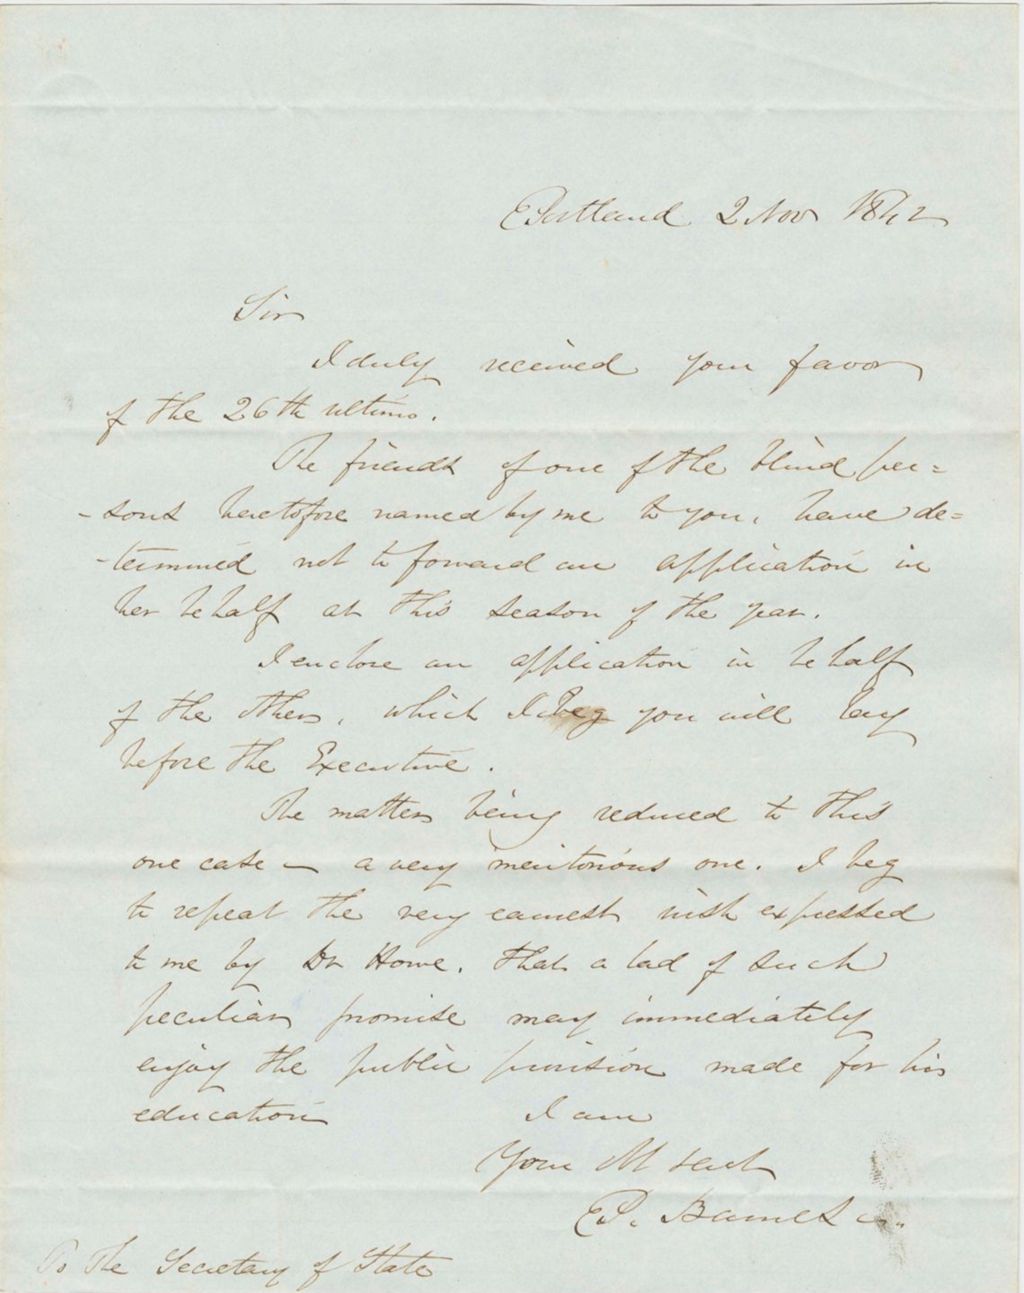 Portland 2 Nov 1842
Sir
I duly received your favor
of the 26th ultimo.
The friends of one of the blind per=
-sons heretofore named by me to you, have de=
-termined not to forward an application in
her behalf at this season of the year.
I enclose an application in behalf
of the other, which I beg you will lay
before the Executive.
The matter being reduced to this
one case — a very meritorious one. I beg
to repeat the very earnest wish expressed
to me by Dr Howe, that a lad of such
peculiar promise may immediately
enjoy the public provision made for his
education
I am
Your
P. Barnes
To the Secretary of State